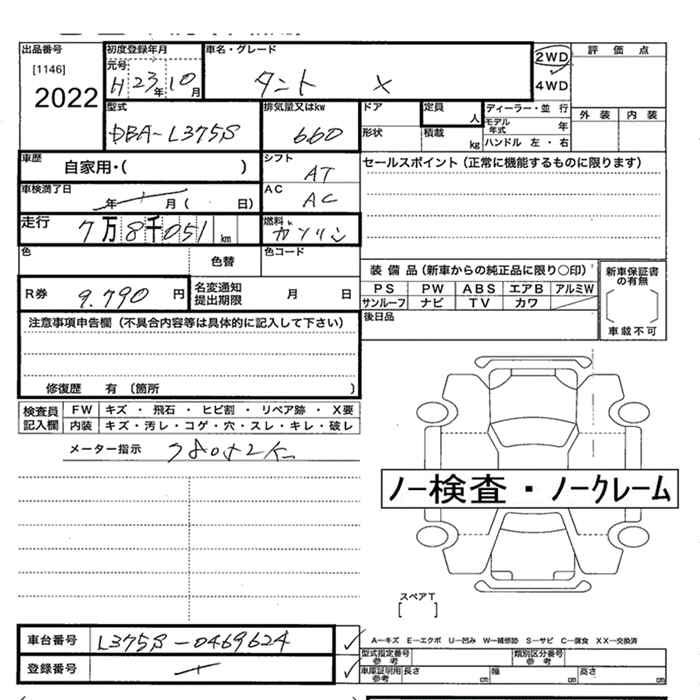 出品番号 初度登録年月 車名・グレード 評価点
[1146] 元号 2WD
2022 H 23年10月 タント X 4WD
外装 内装
型式 排気量又はkw ドア 定員 人 ディーラー・並行
DBA-L375S 660 モデル年式 年
形状 積載 kg ハンドル 左・右
車歴 自家用・( ) シフト AT セールスポイント(正常に機能するものに限ります)
車検満了日 年 月( 日) AC AC
走行 7万8千051km 燃料 ガソリン
色 色替 色コード
装備品(新車からの純正品に限り○印) 新車保証書の有無
R券 9.790 円 名変通知提出期限 月 日 PS PW ABS エアB アルミW
サンルーフ ナビ TV カワ 車載不可
注意事項申告欄(不具合内容等は具体的に記入して下さい) 後日品
修復歴 有(箇所 )
検査員記入欄 FW キズ・飛石・ヒビ割・リペア跡・X要
内装 キズ・汚レ・コゲ・穴・スレ・キレ・破レ
メーター指示
ノー検査・ノークレーム
スペアT
[ ]
車台番号 L375S-0469624 A-キズ E-エクボ U-凹み W-補修跡 S-サビ C-腐食 XX-交換済
型式指定番号 参考 類別区分番号 参考
登録番号 車庫証明用 参考 長さ cm 幅 cm 高さ cm